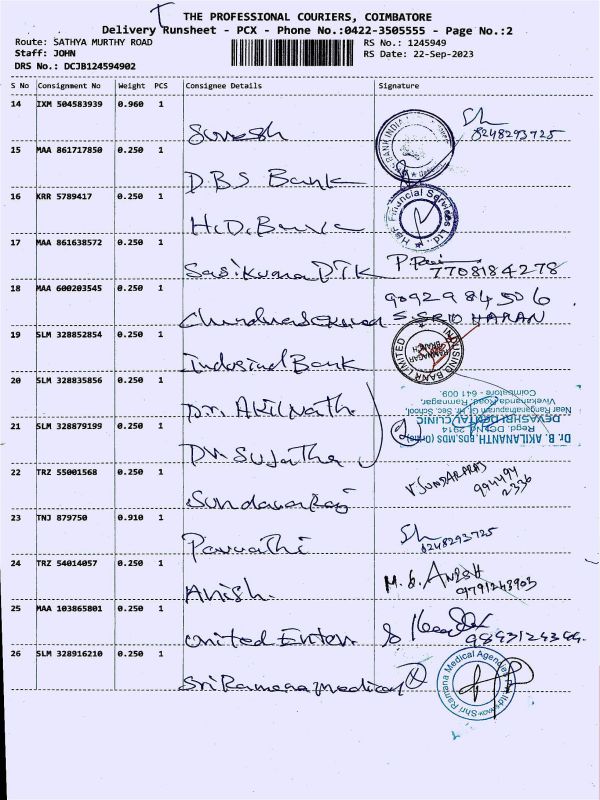 THE PROFESSIONAL COURIERS, COIMBATORE
Delivery Runsheet - PCX - Phone No.:0422-3505555 - Page No.:2
Route: SATHYA MURTHY ROAD RS No.: 1245949
Staff: JOHN RS Date: 22-Sep-2023
DRS No.: DCJB124594902
S No Consignment No Weight PCS Consignee Details Signature
14 IXM 504583939 0.960 1
Suresh
8248293725
15 MAA 861717850 0.250 1
DBS Bank
16 KRR 5789417 0.250 1
H&F Financial Services Ltd.
17 MAA 861638572 0.250 1
Sasikumar PTK 7708184278
18 MAA 600203545 0.250 1
9092984506
S. SRIDHARAN
19 SLM 328852854 0.250 1
Indusind Bank
INDUSIND BANK LIMITED
RAMNAGAR BRANCH
20 SLM 328835856 0.250 1
Dr. Akilnath
21 SLM 328879199 0.250 1
Dr. Sujatha
Dr. B. AKILANANTH, BDS, MDS (Ortho)
Regd. DCI No. 2914
DEVASHRI DENTAL CLINIC
Near Ranganathapuram Gr. Hr. Sec. School,
Vivekananda Road, Ramnagar,
Coimbatore - 641 009.
22 TRZ 55001568 0.250 1
Sundararaj
V SUNDARARAJ
994494
2336
23 TNJ 879750 0.910 1
Parvathi
8248293725
24 TRZ 54014057 0.250 1
Anish.
M. S. ANISH
9791243903
25 MAA 103865801 0.250 1
United Enter
26 SLM 328916210 0.250 1
Sri Ramana medical
Shri Ramana Medical Agencies